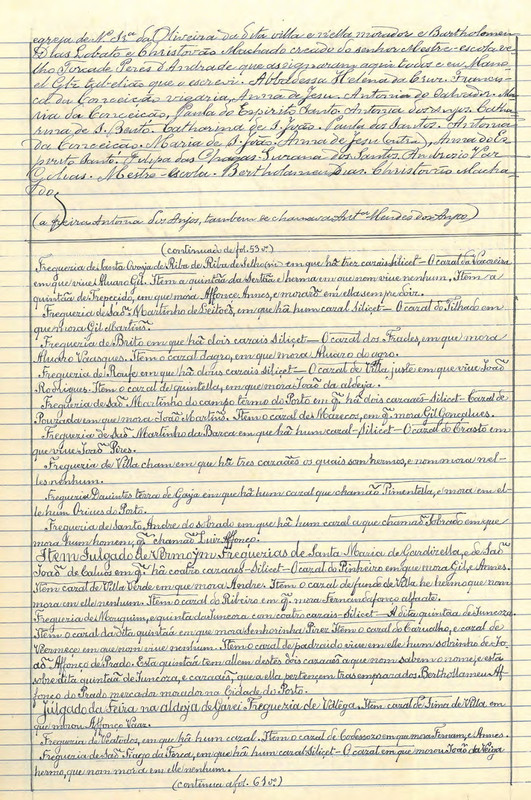 egreja de N. Sra da Oliveira da dita villa e n'ella morador e Bartholomeu
Dias Lobato e Christovão Machado creado do senhor Mestre-escola, ve-
lho Jorcade Peres d'Andrade que assignaram aqui todos e eu Mano-
el Glz tabelião que o escrevi. Abbadessa Helena da Cruz. Francis-
ca da Conceição vigaria, Anna de Jesu. Antonia do Salvador. Ma-
ria da Conceição, Paula do Espirito Santo. Antonia dos Anjos. Catha-
rina de S. Bento. Catharina de S. João. Paula dos Santos. Antonia
da Conceição. Maria de S. João. Anna de Jesu (outra), Anna do Es-
pirito Santo. Felipa das Chagas. Suzana dos Santos. Ambrosio Vaz
Golias. Mestre-escola. Bertholameu Dias. Christovão Macha-
do.
(a freira Antonia dos Anjos, tambem se chamava Ant.a Mendes dos Anjos)
(continuação de fol. 55 v.)
Freguezia de Santa Ovaja de Riba de Riba de Selho (sic) em que há trez carais silicet – O caral da Vaccaria
em que vive Alvaro Gil. Item a quintãa da Sertãa e herma em que nom vive nenhum. Item a
quintãa de Trepecido, em que mora Affonce Annes, e morarõ em ella sempre doir.
Fregueria de São Martinho de Leitões, em que há hum caral siliçet – O caral do Filhado em
que mora Gil Martinz.
Fregueria de Brito em que há dois carais siliçet – O caral dos Frades, em que mora
Alvaro Vaasques. Item o caral d'agro, em que mora Alvaro do agro.
Fregueria de Roufe em que há dous carais siliçet – O caral de Villa juste em que vive João
Rodrigues. Item o caral de quintella, em que mora João da aldeja.
Fregueria de São Martinho do campo termo do Porto em q. há dois caraaes – Silicet – Caral de
Pourada em que mora João Martins. Item o caral de Maecos, em q. mora Gil Gonçalves.
Fregueria de São Martinho da Barca em que há hum caral – Silicet – O caral do Crasto em
que vive João Pires.
Fregueria de Villa cham em que há tres caraães os quais san hermos, e nom mora nel-
les nenhum.
Fregueria Davintes terra de Gaja em que há hum caral que chamão Pimentella, e mora em el-
le hum Orives do Porto.
Fregueria de Santo Andre do sobrado em que há hum caral a que chamão Sobrado em que
mora hum homem, q. chamão Luis Affonço.
Item Julgado de Vermoym Freguerias de Santa Maria de Gordirella, e de São
João de Calvos em q. há coatro caraaes – Silicet – O caral do Pinheiro em que mora Gil, e Annes.
Item caral de Villa Verde em que mora Andre. Item o caral de fundo de Villa he hermo que nom
mora em elle nenhum. Item o caral do Ribeiro em q. mora Fernandafonço alfaate.
Fregueria de Mouquim, e quinta da Juncora com coatro carais – Silicet – A dita quintãa de Juncora.
Item o caral da dita quintãa em que mora Senhorinha Pirez. Item o caral do Carvalho, e caral de
Vermece em que nom vive nenhum. Item o caral de padraido vive em elle hum sobrinho de Jo-
ão Affonço de Prado. Esta quintãa tem allem destes dois caraaes a que nom sabem o nome, e está
sobre dita quintãa de Juncora, e caraaes, que a ella pertençem tras emprasados Bertholameu Af-
fonço do Prado mercador morador na Cidade do Porto.
Julgado da Feira na aldeja de Garei Fregueria de Villega. Item caral de Lima de Villa em
que morou Affonço Vaaz.
Fregueria de Veatodos, em que há hum caral. Item o caral de Codessoro em que mora Fernam, e Annes.
Fregueria de São Tiago da Forca, em que há hum caral Siliçet – O caral em que morou João da Veiga
hermo, que nom mora em elle nenhum.
(continúa a fol. 61 v.)